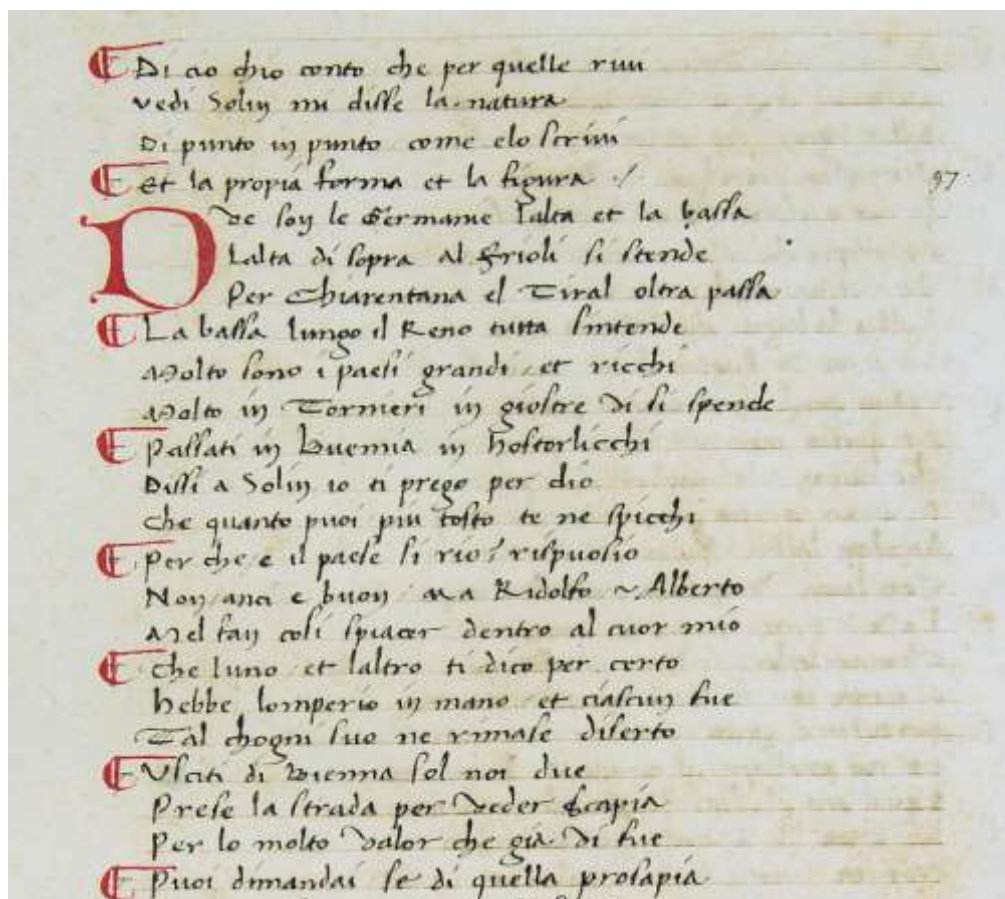 Di cio chio conto che per quelle riui
vedi Solin mi disse la natura
Di punto in punto come elo scriui
Et la propia forma et la figura ./ 97.
Dve son le Germanie lalta et la bassa
Lalta di sopra al Frioli si stende
Per Chiarentana el Tiral oltra passa
La bassa lungo il Reno tutta sintende
Molto sono i paesi grandi et ricchi
Molto in Tornieri in giostre di si spende
Passati in Buemia in hostorlicchi
Dissi a Solin io ti prego per dio
che quanto puoi piu tosto te ne spicchi
Per che e il paese si rio? rispuosio
Non anci e buon Ma Ridolfo Alberto
Mel fan cosi spiacer dentro al cuor mio
Che luno et laltro ti dico per certo
hebbe lomperio in mano et ciascun fue
Tal chogni suo ne rimase diserto
Vsciti di vienna sol noi due
Prese la strada per veder Scapia
Per lo molto valor che gia di fue
Puoi dimandai se di quella prosapia